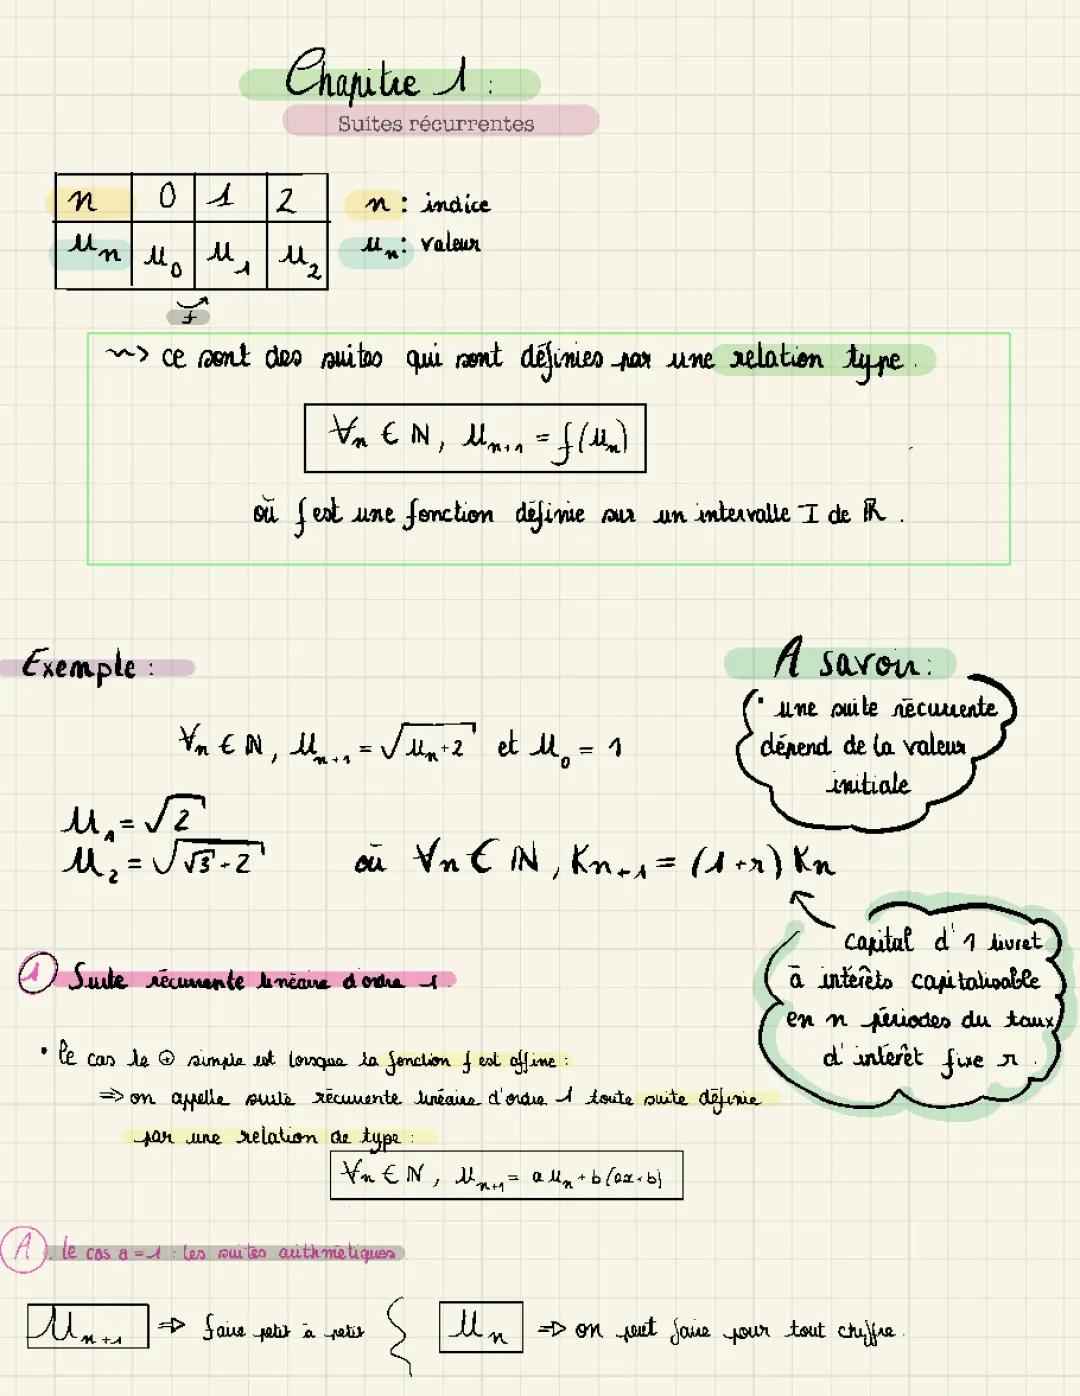 Chapitre 1 :
Suites récurrentes
n 0 1 2
u_n u_0 u_1 u_2
n : indice
u_n : valeur
f
~> ce sont des suites qui sont définies par une relation type.
∀n ∈ ℕ, u_{n+1} = f(u_n)
où f est une fonction définie sur un intervalle I de ℝ.
Exemple :
∀n ∈ ℕ, u_{n+1} = √(u_n+2) et u_0 = 1
u_1 = √2
u_2 = √(√3+2)
A savoir :
• une suite récurrente
dépend de la valeur
initiale
où ∀n ∈ ℕ, K_{n+1} = (1+r) K_n
capital d'1 livret
à intérêts capitalisable
en n périodes du taux
d'intérêt fixe r.
① Suite récurrente linéaire d'ordre 1.
• le cas le ⊕ simple est lorsque la fonction f est affine :
⇒ on appelle suite récurrente linéaire d'ordre 1 toute suite définie
par une relation de type :
∀n ∈ ℕ, u_{n+1} = a u_n + b (ax+b)
A. le cas a = 1 : les suites arithmétiques
u_{n+1} ⇒ faire petit à petit { u_n ⇒ on peut faire pour tout chiffre.